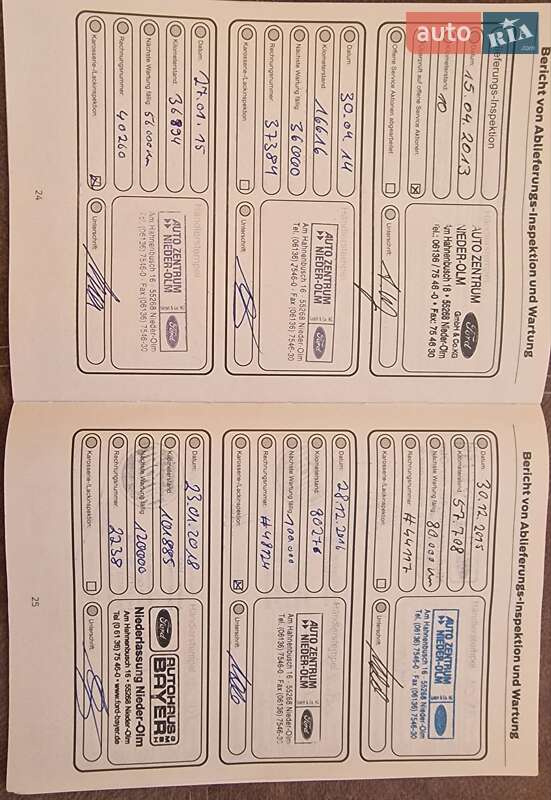 auto RIA .com
Bericht von Ablieferungs-Inspektion und Wartung
Datum: 15.04.2013
Kilometerstand: 10
Offene Service Aktionen abgearbeitet
AUTO ZENTRUM
NIEDER-OLM
GmbH & Co.KG
Am Hahnenbusch 16 • 55268 Nieder-Olm
Tel.: 06136 / 75 46-0 • Fax: 75 46 30
Ford
Datum: 30.04.14
Kilometerstand: 16616
Nächste Wartung fällig: 36000
Rechnungsnummer: 37384
Karosserie-/Lackinspektion:
AUTO ZENTRUM
>> NIEDER-OLM
GmbH & Co. KG
Ford
Am Hahnenbusch 16 · 55268 Nieder-Olm
Tel. (06136) 7546-0 · Fax (06136) 7546-30
Unterschrift:
Datum: 27.01.15
Kilometerstand: 36894
Nächste Wartung fällig: 56000 km
Rechnungsnummer: 40260
Karosserie-/Lackinspektion:
Händlerstempel
AUTO ZENTRUM
>> NIEDER-OLM
GmbH & Co. KG
Ford
Am Hahnenbusch 16 · 55268 Nieder-Olm
Tel. (06136) 7546-0 · Fax (06136) 7546-30
Unterschrift:
24
Bericht von Ablieferungs-Inspektion und Wartung
Datum: 30.12.2015
Kilometerstand: 57.708
Nächste Wartung fällig: 80.000 km
Rechnungsnummer: #44177
Karosserie-/Lackinspektion:
AUTO ZENTRUM
>> NIEDER-OLM
GmbH & Co. KG
Ford
Am Hahnenbusch 16 · 55268 Nieder-Olm
Tel. (06136) 7546-0 Fax (06136) 7546-30
Unterschrift:
Datum: 28.12.2016
Kilometerstand: 80276
Nächste Wartung fällig: 100.000
Rechnungsnummer: #48124
Karosserie-/Lackinspektion:
Händlerstempel
AUTO ZENTRUM
>> NIEDER-OLM
GmbH & Co. KG
Ford
Am Hahnenbusch 16 · 55268 Nieder-Olm
Tel. (06136) 7546-0 Fax (06136) 7546-30
Unterschrift:
Datum: 23.01.2018
Kilometerstand: 101885
Nächste Wartung fällig: 120000
Rechnungsnummer: 2238
Karosserie-/Lackinspektion:
Händlerstempel
Ford AUTOHAUS
BAYER GMBH
Niederlassung Nieder-Olm
Am Hahnenbusch 16 • 55268 Nieder-Olm
Tel (0 61 36) 75 46-0 • www.ford-bayer.de
Unterschrift:
25